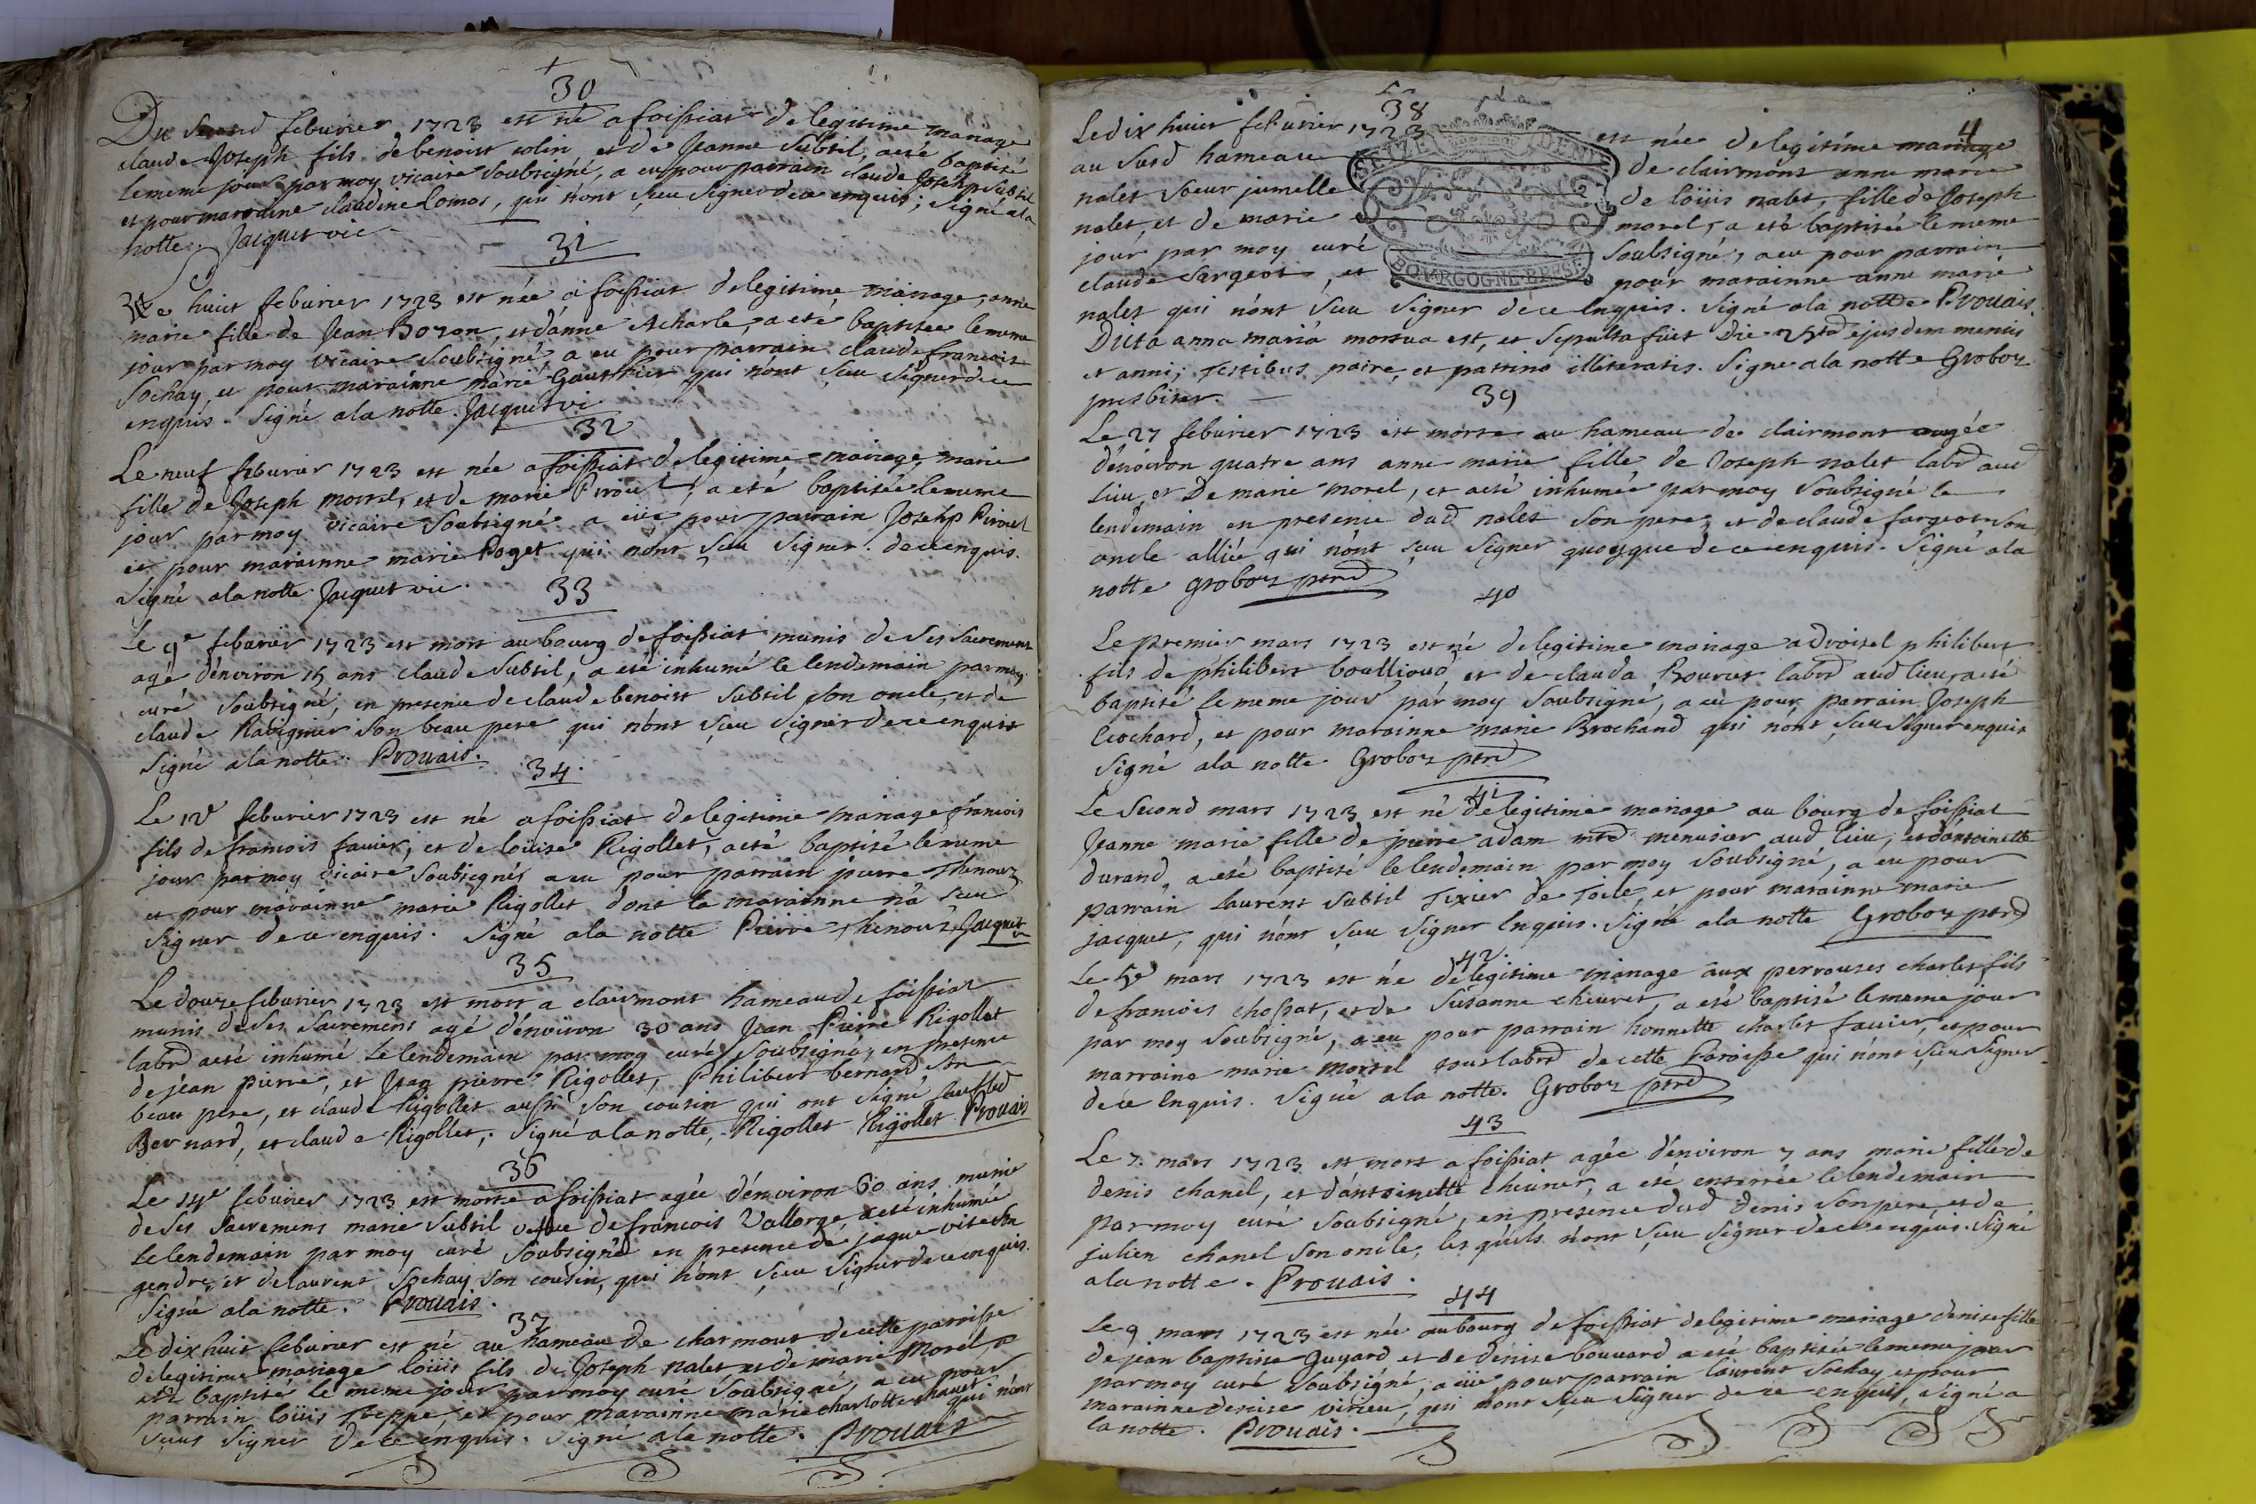 30
Du second feburier 1723 est né a foissiat de legitime mariage
claude Joseph fils de benoist colin et de Jeanne Subtil, a eté baptisé
le meme jour par moy vicaire soubsigné, a eu pour parrain claude Josehp Subtil
et pour maraine claudine Comas, qui n'ont sceu signer de ce enquis; signé a la
notte. Jacquet vic
31
Le huict feburier 1723 est née a foissiat de legitime mariage, anne
marie fille de Jean Bozon, et d'anne Acharle, a eté baptisée le meme
jour par moy vicaire soubsigné a eu pour parrain claude francois
Sochay, et pour marainne marie Gauthier qui n'ont sceu signer de ce
enquis. signé a la notte. Jacquet vic
32
Le neuf feburier 1723 est née a foissiat de legitime mariage, marie
fille de Joseph morel, et de marie Piroud, a eté baptisée le meme
jour par moy vicaire soubsigné a eüe pour parrain Josehp Piroud
et pour marainne marie Poget qui n'ont sceu signer de ce enquis.
signé a la notte Jacquet vic.
33
Le 9e feburier 1723 est mort au bourg de foissiat munis de ses sacremens
agé d'environ 15 ans claude subtil, a eté inhumé le lendemain par moy
curé soubsigné, en presence de claude benoist subtil son oncle, et de
claude Ravignier son beau pere qui n'ont sceu signer de ce enquis
signé a la notte. Prouais.
34.
Le 12e feburier 1723 est né a foissiat de legitime mariage francois
fils de francois favier, et de loüise Rigollet, a eté baptisé le meme
jour par moy vicaire soubsignés a eu pour parrain pierre Thenoux
et pour marainne marie Rigollet dont la marainne n'a sceu
signer de ce enquis. signé a la notte Pierre Thenoux Jacquet
35
Le douze feburier 1723 est mort a clairmont hameau de foissiat
munis de ses sacremens agé d'environ 30 ans Jean Pierre Rigollet
labrd a eté inhumé le lendemain par moy curé soubsigné, en presence
de jean pierre, et Jean pierre Rigollet, Philibert bernard son
beau pere, et claude Rigollet aussi son cousin qui ont signé
Bernard, et claude Rigollet, signé a la notte, Rigollet Rigollet Prouais
36
Le 14e feburier 1723 est morte a foissiat agée d'environ 60 ans munie
de ses sacremens marie Subtil vefve de francois Vallorge, a eté inhumée
le lendemain par moy curé soubsigné en presence de jaque vite son
gendre, et de laurent Sochay son cousin, qui n'ont sceu signer de ce enquis.
signé a la notte. Prouais.
37
Le dix huit feburier est né au hameau de charmont de cette parroisse
de legitime mariage loüis fils de Joseph nalet et de marie Morel, a
eté baptisé le meme jour par moy curé soubsigné, a eu pour
parrain loüis Treppe, et pour marainne marie charlotte chanel qui n'ont
sceus signer de ce enquis. signé a la notte. Prouais
38
4
Le dix huit feburier 1723 est née de legitime mariage
au susd hameau de clairmont anne marie
nalet soeur jumelle de loüis nalet, fille de Joseph
nalet, et de marie morel, a eté baptisée le meme
jour par moy curé soubsigné, a eu pour parrain
claude Sargeot, et pour marainne anne marie
nalet qui n'ont sceu signer de ce enquis. signé a la notte Prouais.
SEIZE DENI
BOURGOGNE BRESSE
Dicta anna maria mortua est, et sepulta fuit die 25ta ejusdem mensis
et anni; Testibus patre, et patrino illiteratis. signé a la notte Groboz
presbiter.
39
Le 27 feburier 1723 est morte au hameau de clairmont augée
d'environ quatre ans anne marie fille de Joseph nalet labrd aud
lieu, et de marie morel, et a eté inhumée par moy soubsigné le
lendemain en presence dud nalet son pere, et de claude sargeot son
oncle allié qui n'ont sceu signer quoyque de ce enquis. signé a la
notte groboz ptrd
40
Le premier mars 1723 est né de legitime mariage a Droisel philibert
fils de philibert boullioud, et de clauda Bourcet labrd aud lieu, a eté
baptisé le meme jour par moy soubsigné, a eu pour parrain Joseph
Crochard, et pour marainne marie Brochand qui n'ont sceu signer enquis
signé a la notte. Groboz ptrd
41
Le second mars 1723 est né de legitime mariage au bourg de foissiat
Jeanne marie fille de pierre adam mtre menusier aud lieu, et d'antoinette
durand, a eté baptisé le lendemain par moy soubsigné, a eu pour
parrain laurent subtil Tixier de Toile, et pour marainne marie
jacquet, qui n'ont sceu signer enquis. signé a la notte Groboz ptrd
42.
Le 5e mars 1723 est né de legitime mariage aux perrouses charles fils
de francois chossat, et de susanne chevret, a eté baptisé le meme jour
par moy soubsigné, a eu pour parrain honnette charles favier, et pour
marraine marie morel tous labrd de cette Paroisse qui n'ont sceu signer
de ce enquis. signé a la notte. Groboz ptrd
43
Le 7. mars 1723 est mort a foissiat agée d'environ 7 ans marie fille de
denis chanel, et d'antoinette chevrier, a eté enterrée le lendemain
par moy curé soubsigné, en presence dud denis son pere, et de
julien chanel son oncle, les quels n'ont sceu signer de ce enquis. signé
a la notte. Prouais.
44
Le 9 mars 1723 est née au bourg de foissiat de legitime mariage denise fille
de jean baptiste Guyard et de denise bouvard a eté baptisée le meme jour
par moy curé soubsigné, a eüe pour parrain laurent sochay, et pour
marainne denise virieu, qui n'ont sceu signer de ce enquis, signé a
la notte. Prouais.